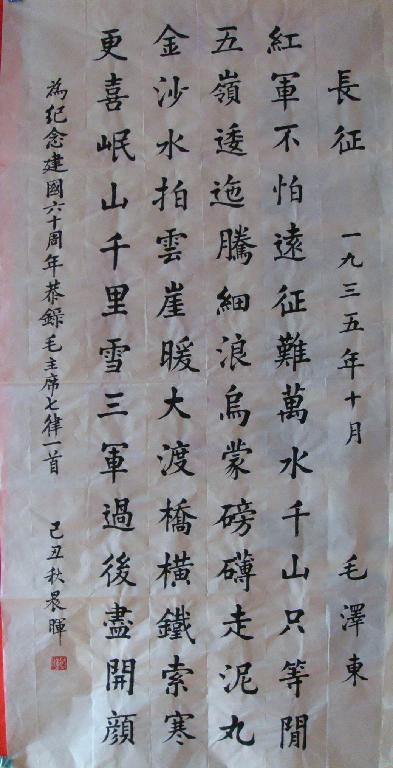 長征 一九三五年十月 毛澤東
紅軍不怕遠征難萬水千山只等閒
五嶺逶迤騰細浪烏蒙磅礴走泥丸
金沙水拍雲崖暖大渡橋橫鐵索寒
更喜岷山千里雪三軍過後盡開顔
為紀念建國六十周年恭錄毛主席七律一首 己丑秋晨暉